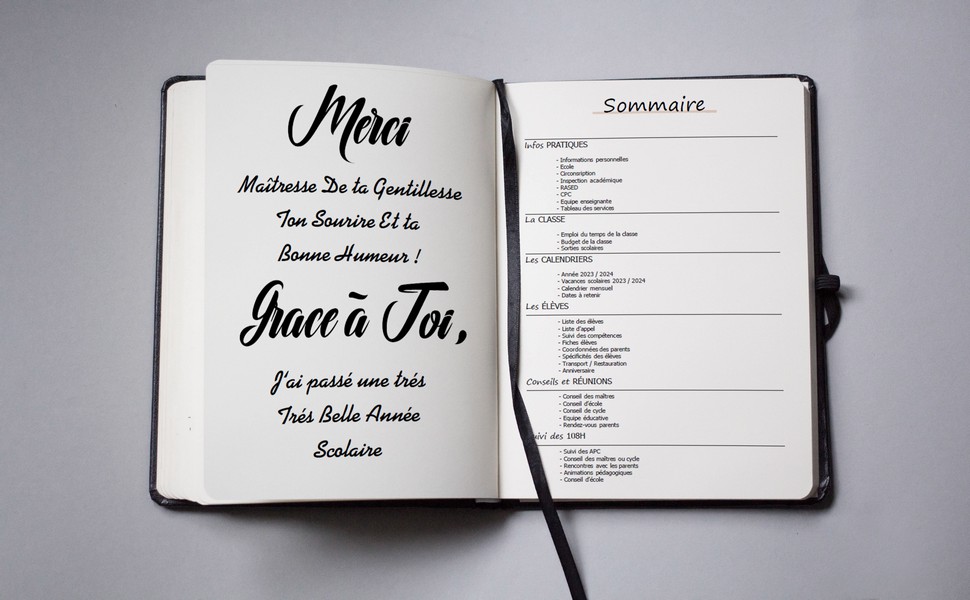 Merci
Maîtresse De ta Gentillesse
Ton Sourire Et ta
Bonne Humeur !
Grace ã Toi,
J'ai passé une trés
Trés Belle Année
Scolaire
Sommaire
Infos PRATIQUES
- Informations personnelles
- Ecole
- Circonsription
- Inspection académique
- RASED
- CPC
- Equipe enseignante
- Tableau des services
La CLASSE
- Emploi du temps de la classe
- Budget de la classe
- Sorties scolaires
Les CALENDRIERS
- Année 2023 / 2024
- Vacances scolaires 2023 / 2024
- Calendrier mensuel
- Dates à retenir
Les ÉLÈVES
- Liste des élèves
- Liste d'appel
- Suivi des compétences
- Fiches élèves
- Coordonnées des parents
- Spécificités des élèves
- Transport / Restauration
- Anniversaire
Conseils et RÉUNIONS
- Conseil des maîtres
- Conseil d'école
- Conseil de cycle
- Equipe éducative
- Rendez-vous parents
Suivi des 108H
- Suivi des APC
- Conseil des maîtres ou cycle
- Rencontres avec les parents
- Animations pédagogiques
- Conseil d'école